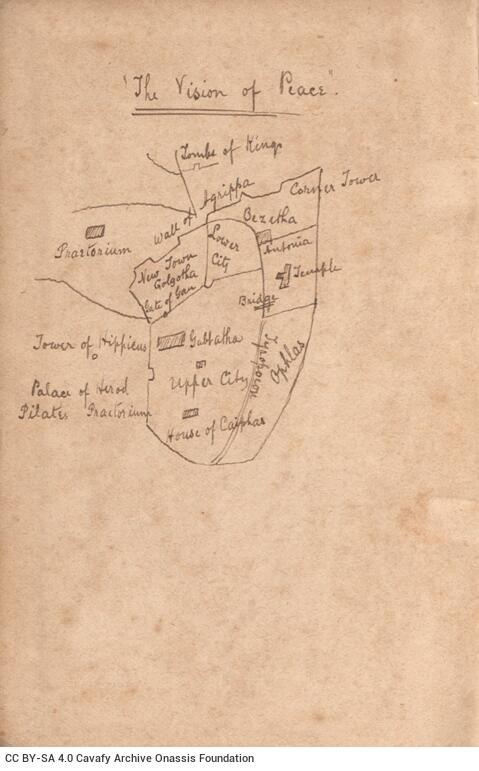 "The Vision of Peace".
Tombs of Kings
Wall of Agrippa
Corner Tower
Bezetha
Praetorium
Lower
City
Antonia
New Town
Golgotha
Gate of
Temple
Bridge
Tower of Hippicus
Gabbatha
Tyropoeon
Ophlas
Upper City
Palace of Herod
Pilates Praetorium
House of Caiphas
CC BY-SA 4.0 Cavafy Archive Onassis Foundation